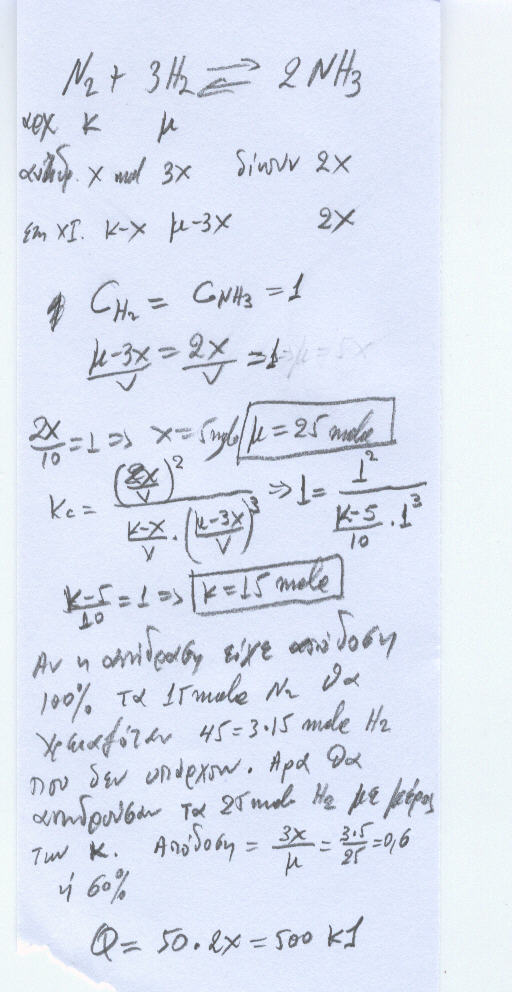 N₂ + 3H₂ ⇌ 2NH₃
αρχ κ μ
αντιδρ. x mol 3x δίνουν 2x
στη ΧΙ. κ-x μ-3x 2x
C_H₂ = C_NH₃ = 1
(μ-3x)/V = 2x/V = 1 ⇒ μ = 5x
2x/10 = 1 ⇒ x = 5 mole μ = 25 mole
Kc = (2x/V)² / ((κ-x)/V · ((μ-3x)/V)³) ⇒ 1 = 1² / ((κ-5)/10 · 1³)
(κ-5)/10 = 1 ⇒ κ = 15 mole
Αν η αντίδραση είχε απόδοση
100% τα 15 mole N₂ θα
χρειαζόταν 45 = 3·15 mole H₂
που δεν υπάρχουν. Άρα θα
αντιδρούσαν τα 25 mole H₂ με μέρος
των κ. Απόδοση = 3x/μ = 3·5/25 = 0,6
ή 60%
Q = 50·2x = 500 kJ